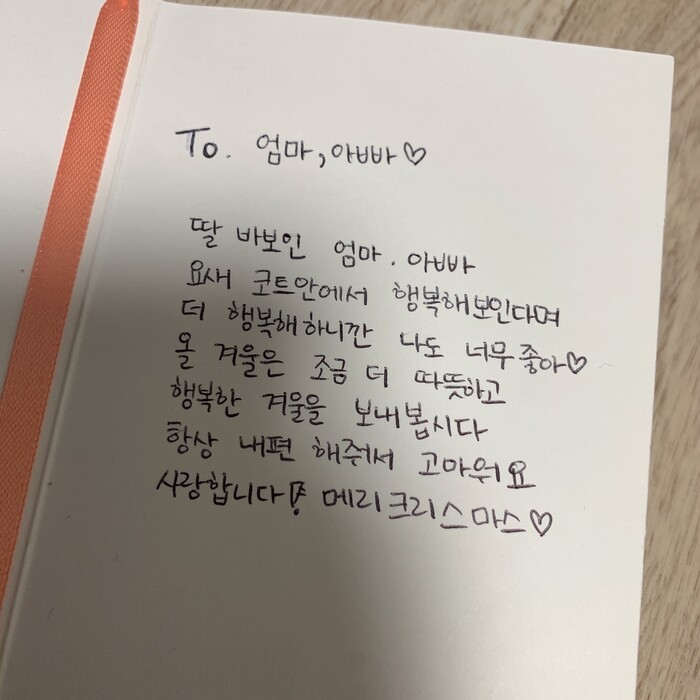 To. 엄마, 아빠♡
딸 바보인 엄마. 아빠
요새 코트안에서 행복해보인다며
더 행복해하니깐 나도 너무 좋아♡
올 겨울은 조금 더 따뜻하고
행복한 겨울을 보내봅시다
항상 내편 해줘서 고마워요
사랑합니다! 메리크리스마스♡